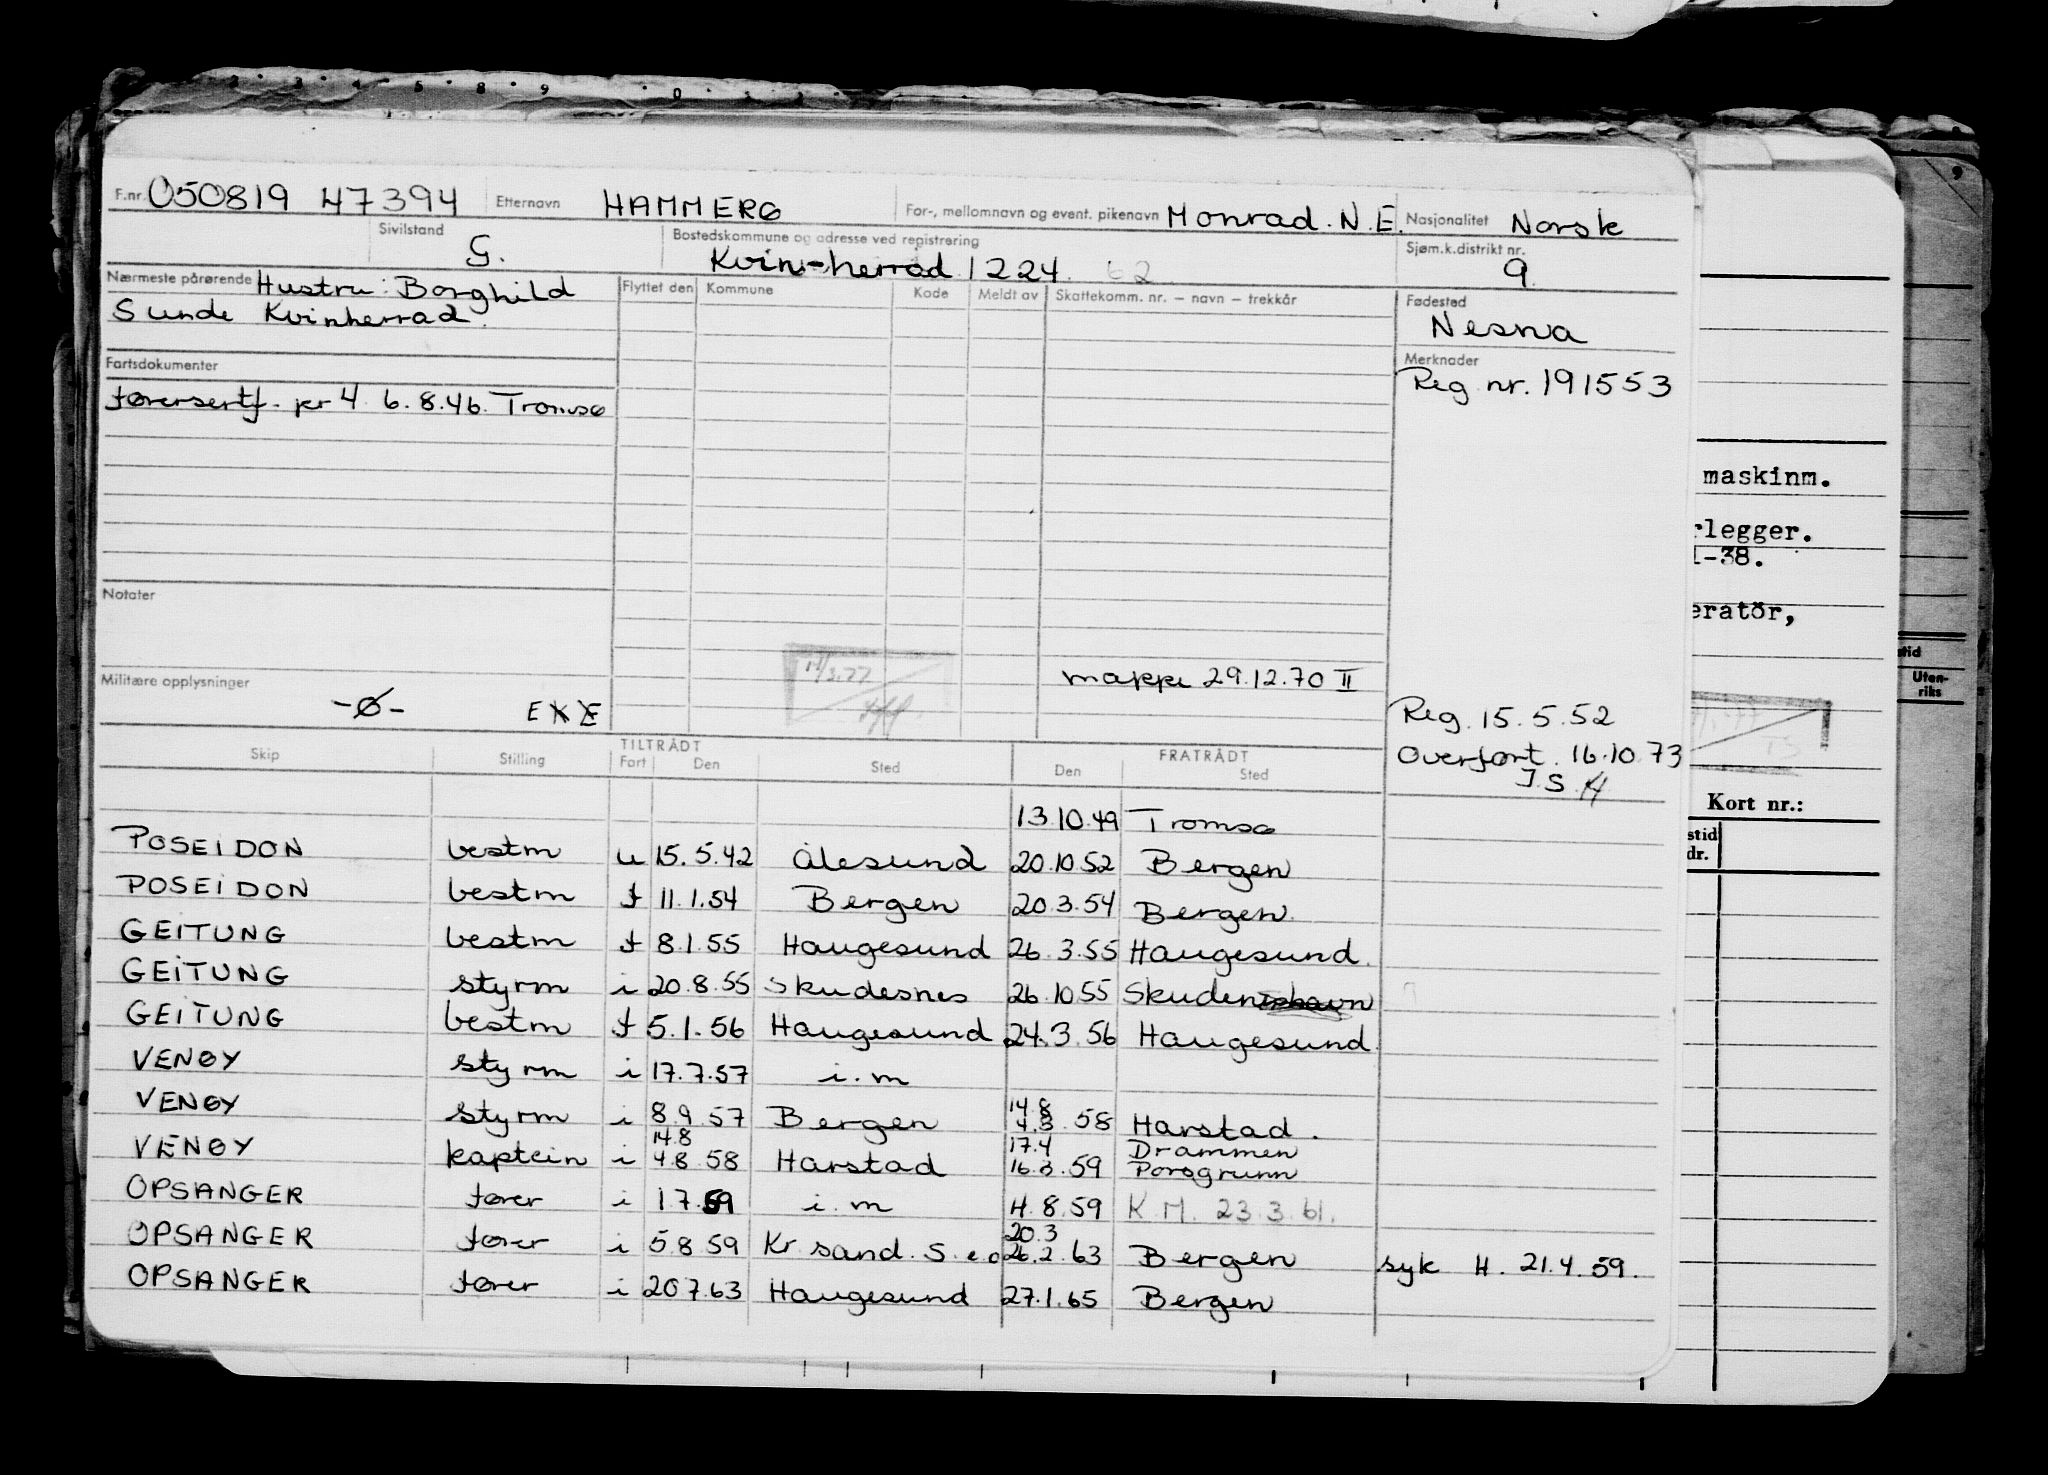 F.nr. 050819 47394 Etternavn HAMMERØ For-, mellomnavn og event. pikenavn Monrad. N. E. Nasjonalitet Norsk
Sivilstand G. Bostedskommune og adresse ved registrering Kvin-herrad 1224. 62 Sjøm.k.distrikt nr. 9.
Nærmeste pårørende Hustru: Borghild
Sunde Kvinherrad.
Flyttet den Kommune Kode Meldt av Skattekomm. nr. – navn – trekkår
Fødested
Nesna
Fartsdokumenter
førersertf. per 4. 6.8.46. Tromsø
Merknader
Reg nr. 191553
maskinm.
rlegger.
1-38.
eratör,
Notater
Militære opplysninger
-Ø-
mappe 29.12.70 II
Reg. 15.5.52
Overført. 16.10.73
J.S.
stid
Uten-
riks
Kort nr.:
stid
dr.
Skip Stilling TILTRÅDT Fart Den Sted FRATRÅDT Den Sted
13.10.49 Tromsø
POSEIDON bestm u 15.5.42 Ålesund 20.10.52 Bergen
POSEIDON bestm f 11.1.54 Bergen 20.3.54 Bergen.
GEITUNG bestm f 8.1.55 Haugesund 26.3.55 Haugesund.
GEITUNG styrm i 20.8.55 Skudesnes 26.10.55
GEITUNG bestm f 5.1.56 Haugesund 24.3.56 Haugesund.
VENØY styrm i 17.7.57 i.m
VENØY styrm i 8.9.57 Bergen 14.8 4.3.58 Harstad.
VENØY kaptein i 14.8 4.8.58 Harstad 17.4 16.3.59 Drammen Porsgrunn
OPSANGER fører i 1.7.59 i.m 4.8.59 K.M. 23.3.61.
OPSANGER fører i 5.8.59 Kr.sand. S. e.o 20.3 26.2.63 Bergen syk H. 21.4.59.
OPSANGER fører i 20.7.63 Haugesund 27.1.65 Bergen